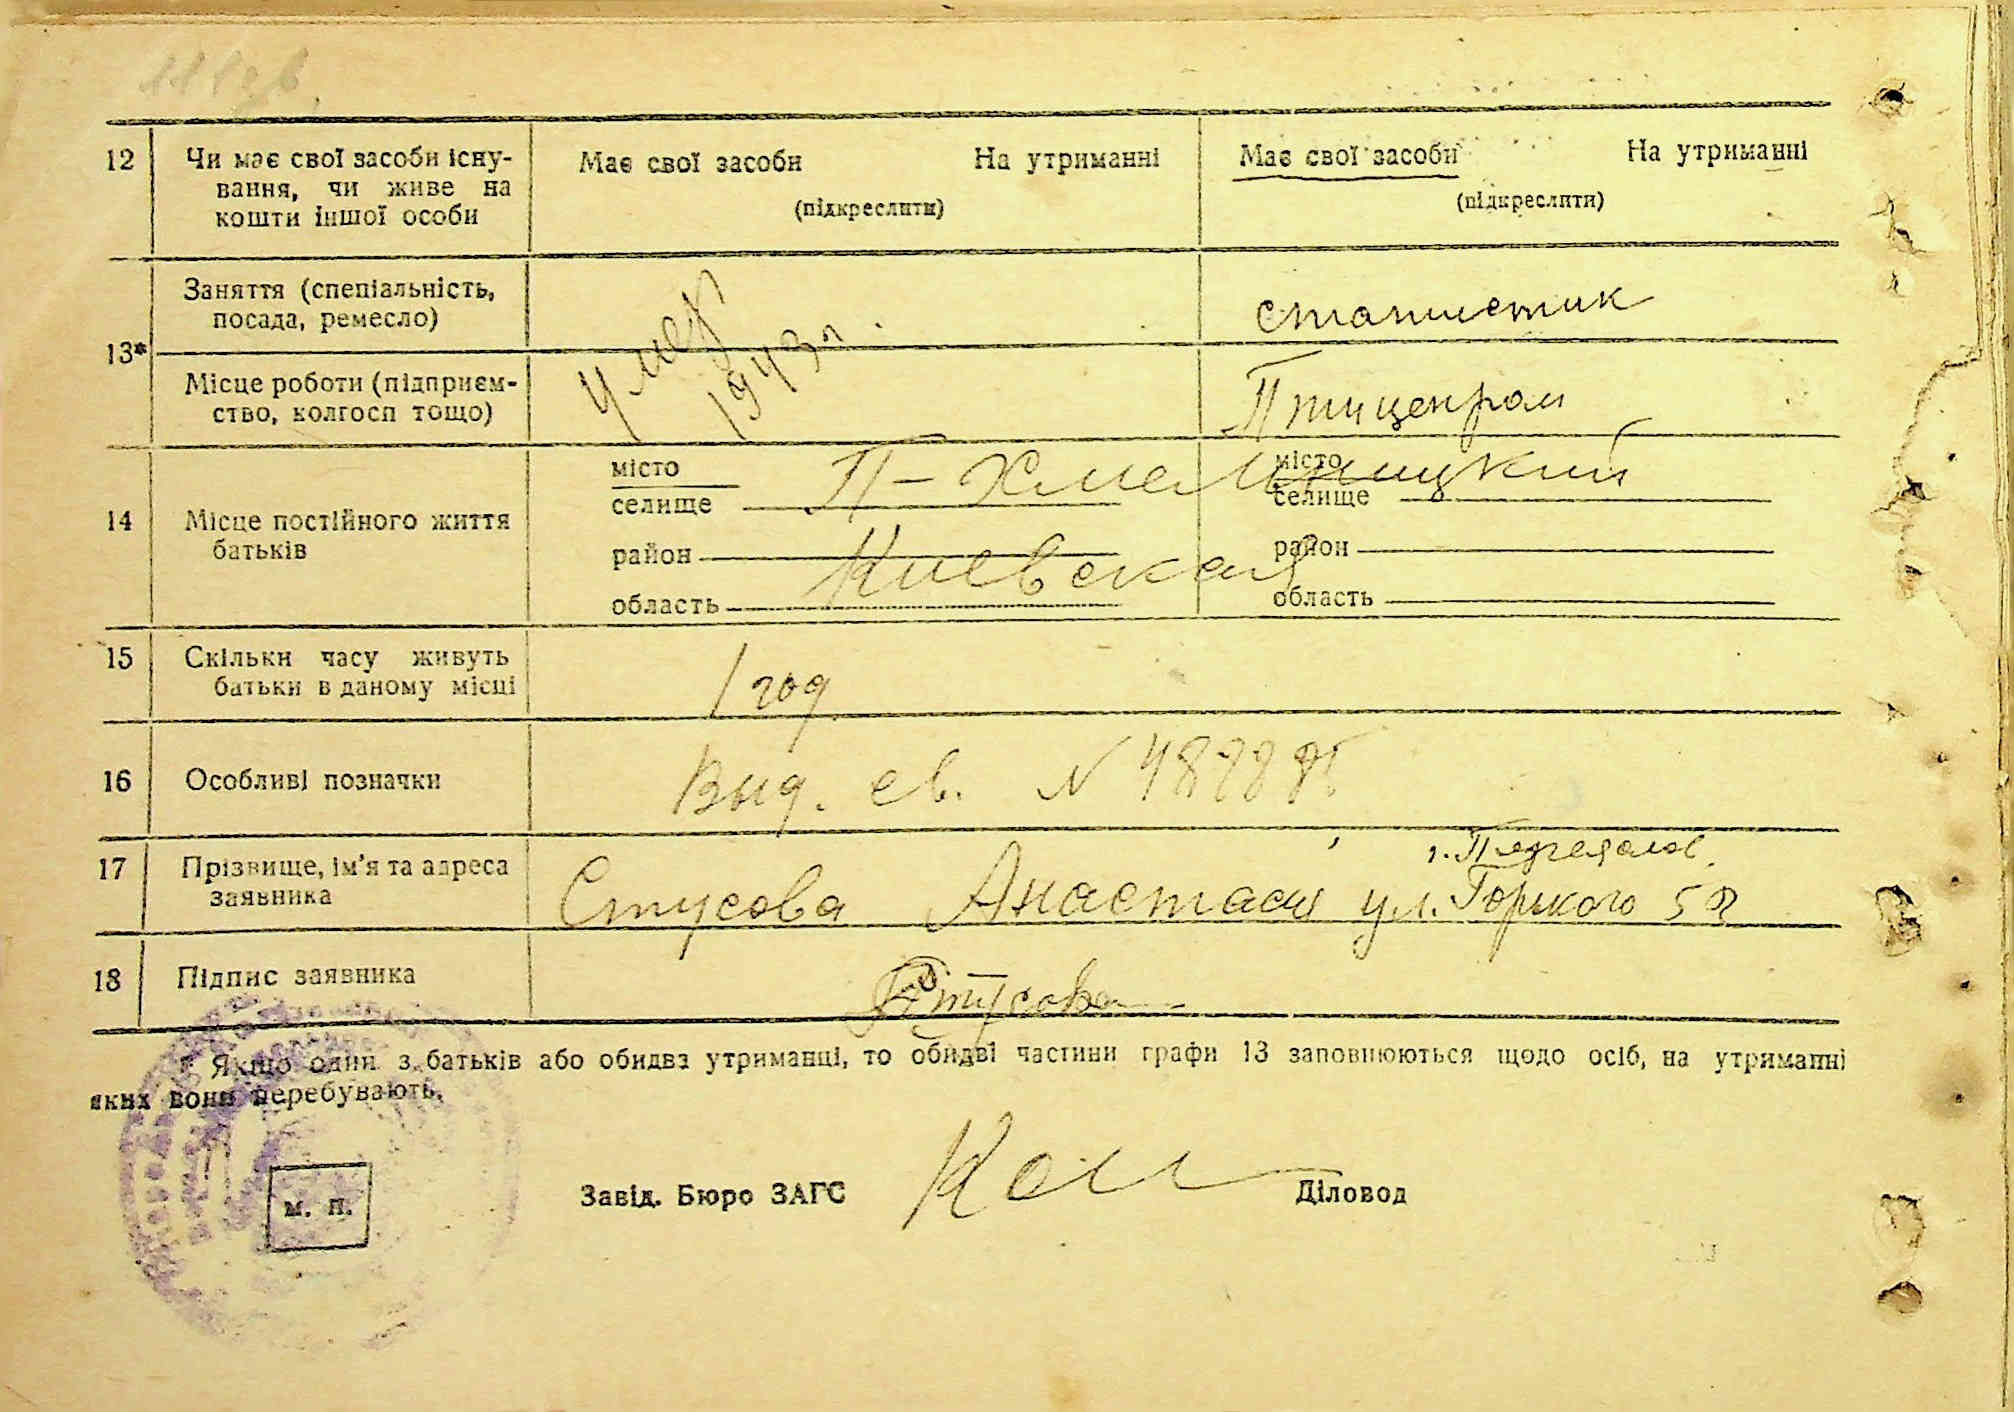 12 Чи має свої засоби існу-
вання, чи живе на
кошти іншої особи
Має свої засоби На утриманні
(підкреслити)
Має свої засоби На утриманні
(підкреслити)
13*
Заняття (спеціальність,
посада, ремесло)
умер
1943 г.
статистик
Місце роботи (підприєм-
ство, колгосп тощо)
Птицепром
14 Місце постійного життя
батьків
місто
селище
П-Хмельницкий
район
область
Киевская
місто
селище
район
область
15 Скільки часу живуть
батьки в даному місці
1 год
16 Особливі позначки
Выд. св. N
17 Прізвище, ім'я та адреса
заявника
Стусова Анастасия ул. Горького 58
18 Підпис заявника
Стусова
* Якщо один з батьків або обидва утриманці, то обидві частини графи 13 заповнюються щодо осіб, на утриманні
яких вони перебувають.
м. п.
Завід. Бюро ЗАГС
Діловод